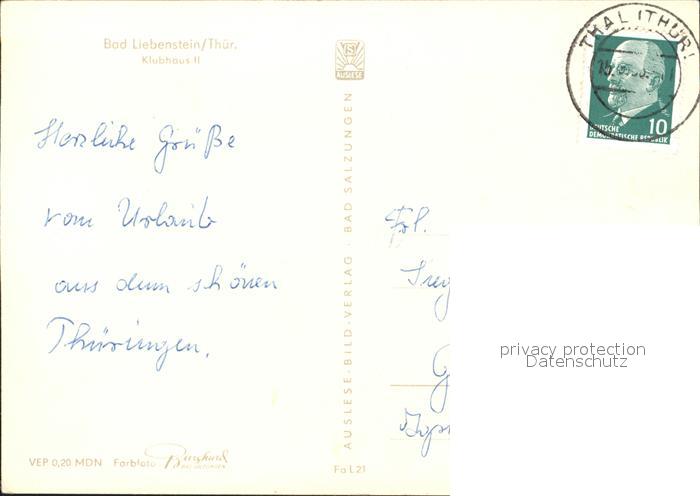 Bad Liebenstein/Thür.
Klubhaus II
AUSLESE
THAL (THÜR)
10
DEUTSCHE
DEMOKRATISCHE REPUBLIK
Herzliche Grüße
vom Urlaub
aus dem schönen
Thüringen.
AUSLESE-BILD-VERLAG · BAD SALZUNGEN
Frl.
privacy protection
Datenschutz
VEP 0,20 MDN Farbfoto Burghard
BAD SALZUNGEN
Fa L 21